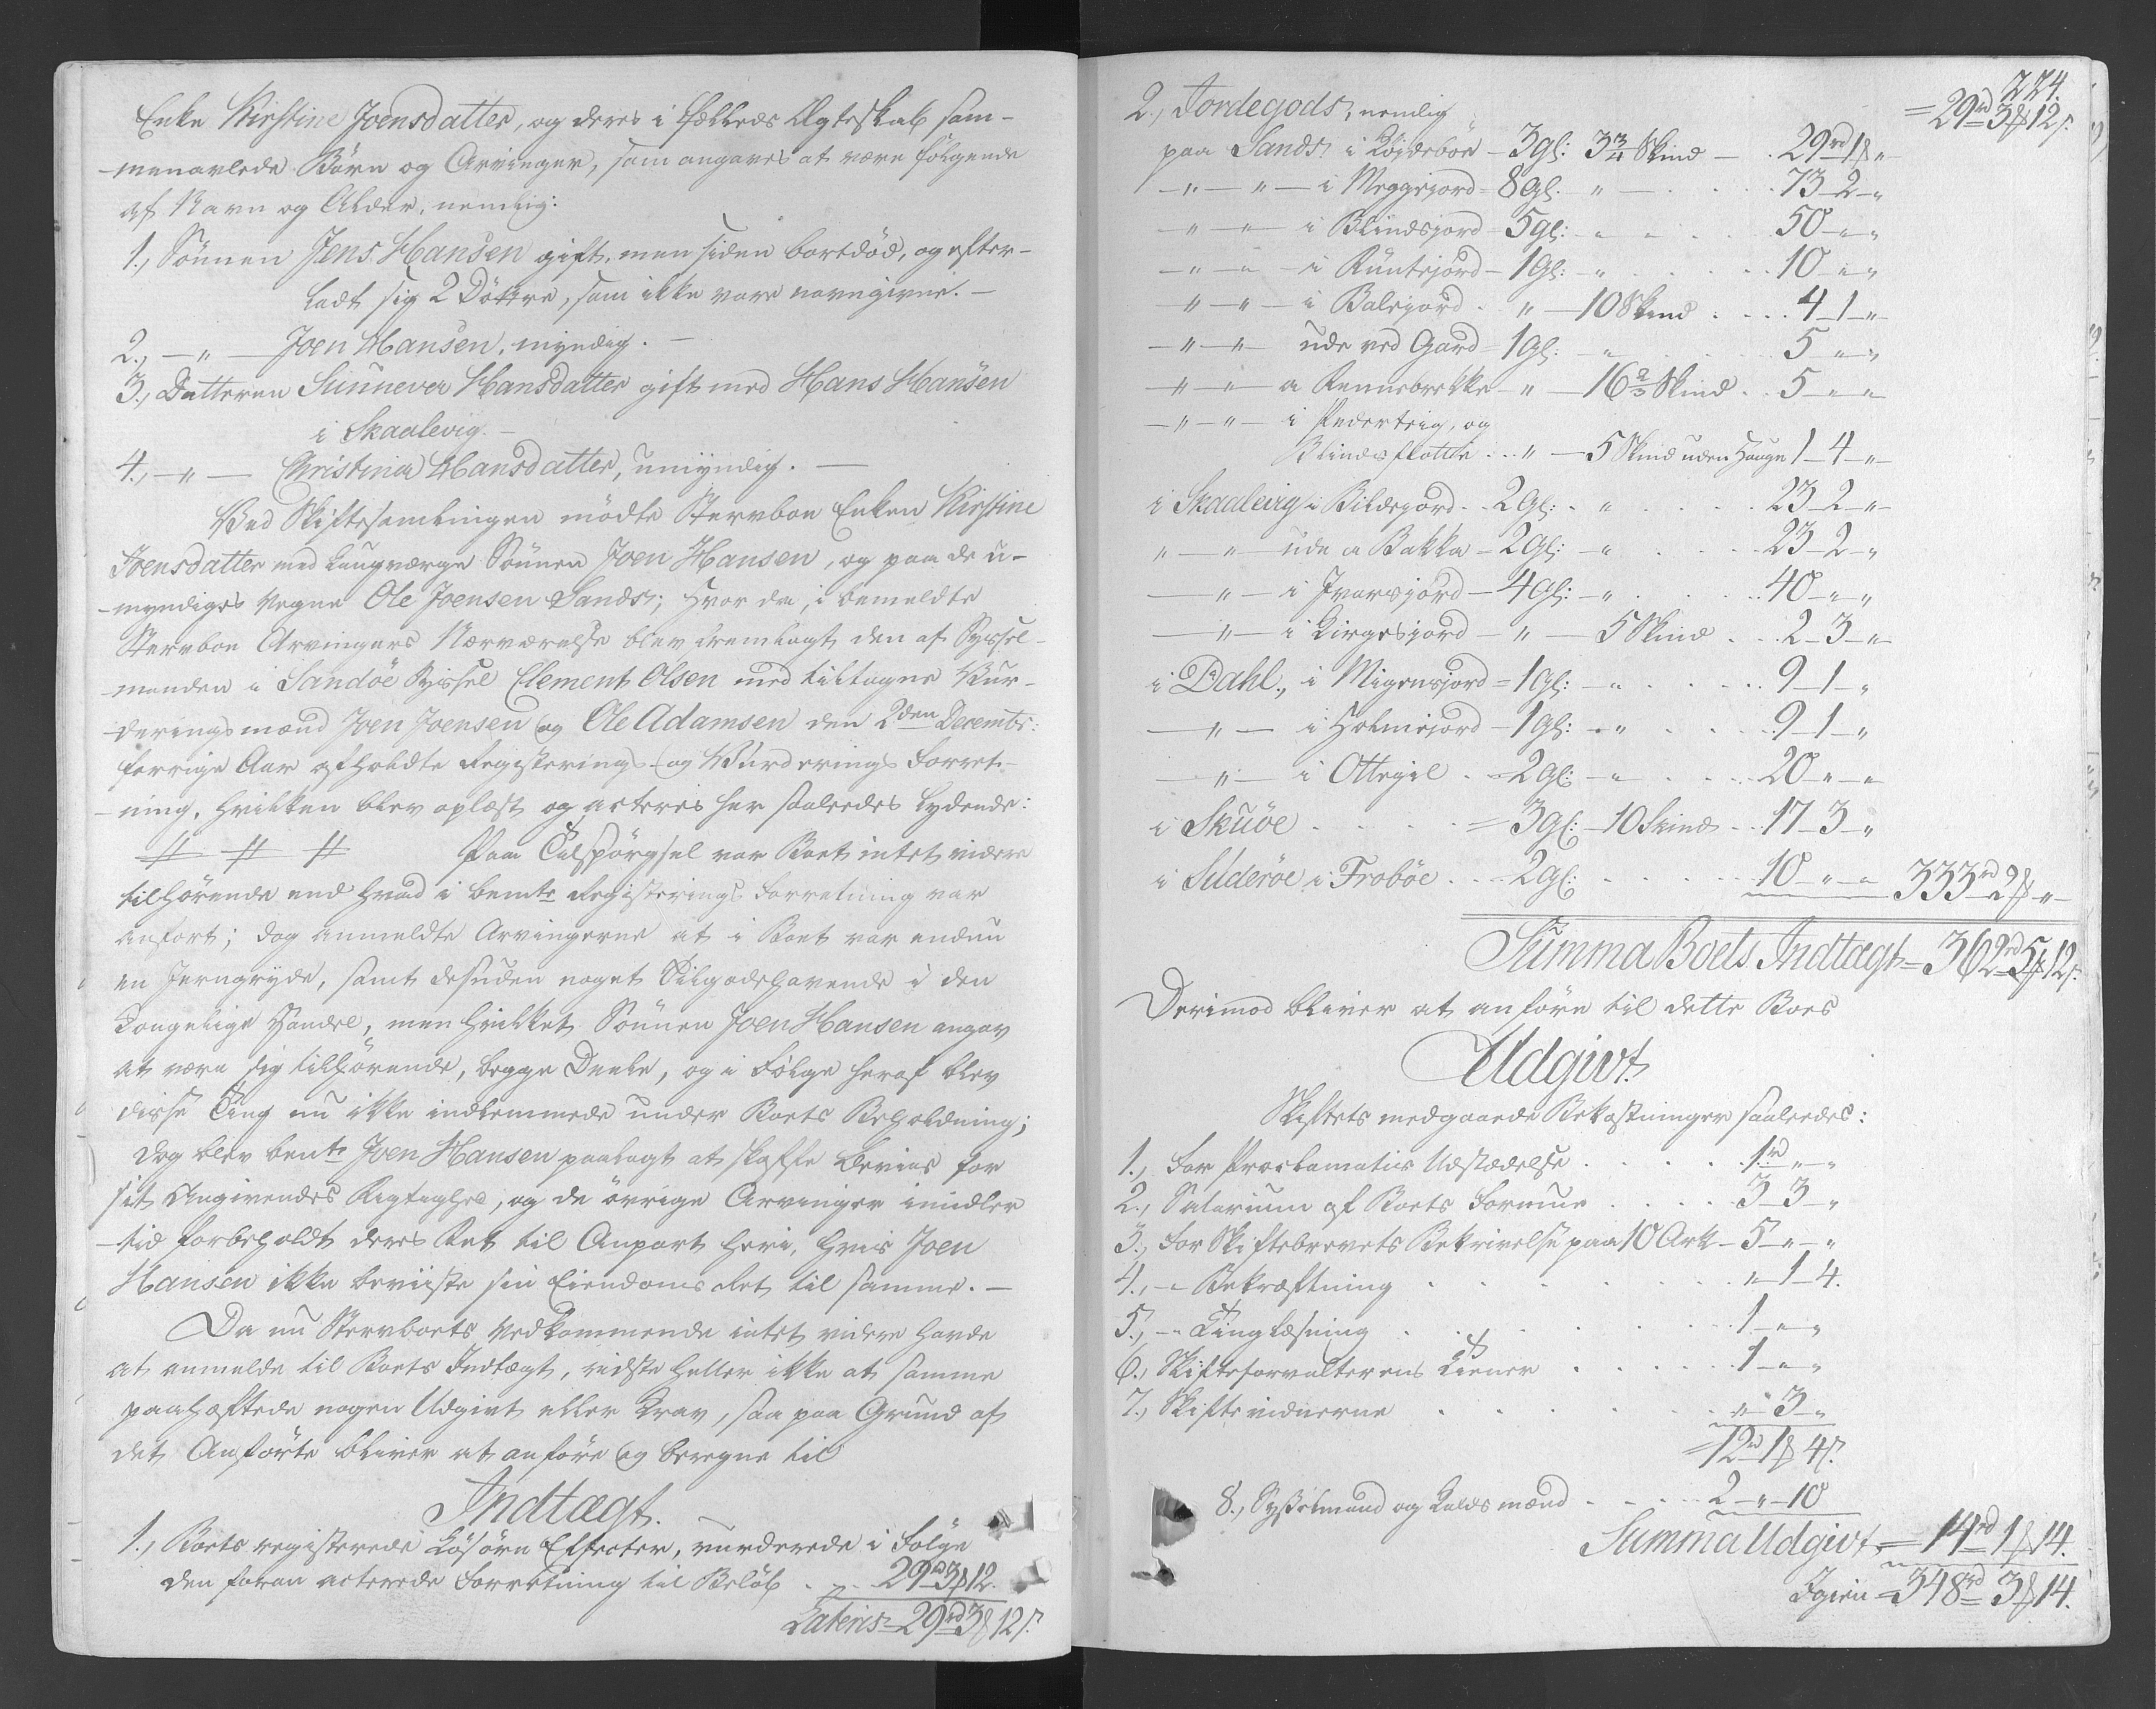 Enke Kirstine Joensdatter, og deres i Fælleds Ægteskab sam-
menavlede Børn og Arvinger, som angaves at være følgende
af Navn og Alder, nemlig:
1., Sönnen Jens Hansen gift, men siden bortdöd, og efter-
ladt sig 2 Döttre, som ikke vare navngivne. —
2., — " — Joen Hansen, myndig. —
3., Datteren Sunneva Hansdatter gift med Hans Hansen
i Skaalevig. —
4., — " — Christina Hansdatter, umyndig. —
Ved Skiftesamlingen mödte Stervboe Enken Kirstine
Joensdatter med Laugværge Sönnen Joen Hansen, og paa de u-
myndiges Vegne Ole Joensen Sands; hvor da, i bemeldte
Stervboe Arvingers Nærværelse blev fremlagt den af Syssel-
manden i Sandöe Syssel Clement Olsen med tiltagne Vur-
deringsmænd Joen Joensen og Ole Adamsen den 2den Decembr:
forrige Aar afholdte Registerings- og Vurderings Forret-
ning, hvilken blev oplæst og acteres her saaledes lydende:
# # # Paa Tilspörgsel var Boet intet videre
tilhörende end hvad i bemte Registerings Forretning var
anfört; dog anmeldte Arvingerne at i Boet var endnu
en Jerngryde, samt desuden noget Tilgodehavende i den
Kongelige Handel, men hvilket Sönnen Joen Hansen angav
at være sig tilhörende, begge Deele, og i Fölge heraf blev
disse Ting nu ikke indlemmede under Boets Beholdning;
dog blev bemte Joen Hansen paalagt at skaffe Beviis for
sit Angivendes Rigtighed, og de övrige Arvinger imidler-
tid forbeholdt deres Ret til Anpart heri, hvis Joen
Hansen ikke beviiste sin Eiendoms Ret til samme. —
Da nu Stervboets Vedkommende intet videre havde
at anmelde til Boets Indtægt, vidste heller ikke at samme
paahæftede nogen Udgivt eller Krav, saa paa Grund af
det Anförte bliver at anföre og beregne til
Indtægt.
1., Boets registerede Lösöre Effecter, vurderede i Fölge
den foran acterede Forretning til Belöb . . 29rd 3ß 12.
Lateris = 29rd 3ß 12s.
224.
= 29rd 3ß 12s.
2., Jordegods, nemlig
paa Sands, i Köjdeböe — 3gl: 3 3/4 Skind — . 29rd 1ß "
— " — " — i Meggejord = 8gl. " — . . . 73 – 2 – "
— " — " — i Blindsjord = 5gl: " . . . 50 – " – "
— " — " — i Runtejord – 1gl: – " . . . 10 – " – "
— " — " — i Balejord . . " — 10 Skind . . . 4 – 1 – "
— " — " — ude ved Gard – 1gl: – " . . . 5 – " – "
— " — " — a Rennebrekke – " — 16 2/3 Skind . . 5 – " – "
— " — " — i Pederteig, og
Blindsflötte . . " — 5 Skind uden Hauge 1 – 4 – "
i Skaalevig i Bildejord . . 2gl: . " . . . 23 – 2 – "
" — " — ude a Bakka – 2gl: – " . . . 23 – 2 – "
— " — i Ivarsjord – 4gl: – " . . . 40 – " – "
— " — i Kirgesjord – " — 5 Skind . . . 2 – 3 – "
i Dahl., i Migensjord = 1gl: – " . . . 9 – 1 – "
— " — i Holmejord – 1gl: – " . . . 9 – 1 – "
— " — i Ottegil . . = 2gl: – " . . . 20 – " – "
i Skuöe . . . . = 3gl: – 10 Skind . . 17 – 3 – "
i Suderöe i Froböe . . . = 2gl: . . . 10 – " – " 333rd 2ß "
Summa Boets Indtægt = 362rd 5ß 12s.
Derimod bliver at anföre til dette Boes
Udgivt.
Skiftets medgaaede Bekostninger saaledes:
1., For Proclamatis Udstædelse . . . . . 1rd " – "
2., Salarium af Boets Formue . . . . 3 – 3 – "
3., For Skiftebrevets Bekrivelse paa 10 Ark – 5 – " – "
4., – " Bekræftning . . . . . " – 1 – 4.
5., – " Tinglæsning . . . . . 1 – " – "
6., Skifteforvalterens Tiener . . . . . 1 – " – "
7., Skiftevidnerne . . . . . " – 3 – "
= 12rd 1ß 4s.
8., Sysselmand og Kaldsmænd . . . . 2 – " – 10
Summa Udgivt = 14rd 1ß 14.
Igien = 348rd 3ß 14.